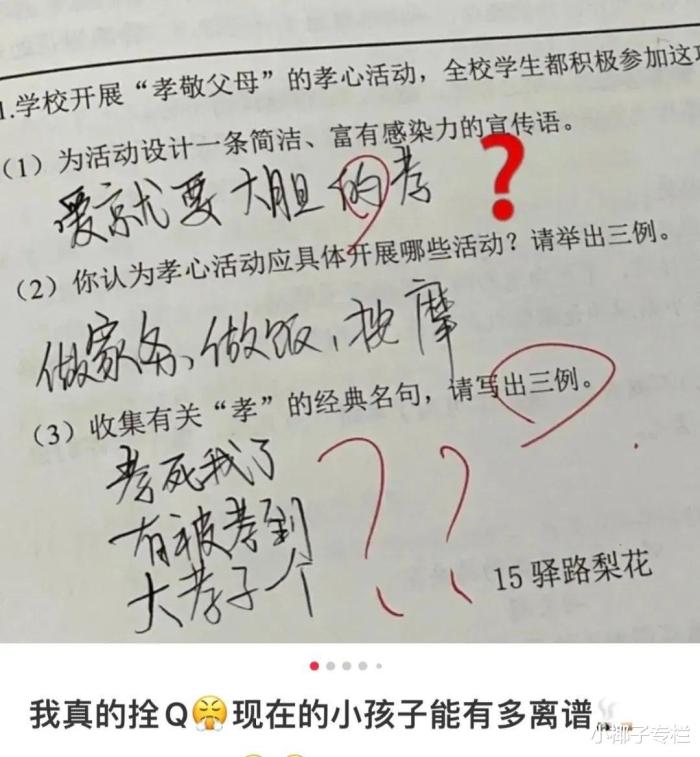 1.学校开展“孝敬父母”的孝心活动，全校学生都积极参加这项
（1）为活动设计一条简洁、富有感染力的宣传语。
爱就要大胆的孝
？
（2）你认为孝心活动应具体开展哪些活动？请举出三例。
做家务、做饭、按摩
（3）收集有关“孝”的经典名句，请写出三例。
孝死我了
有被孝到
大孝子一个
？？
15 驿路梨花
我真的拴Q😤现在的小孩子能有多离谱
小椰子专栏